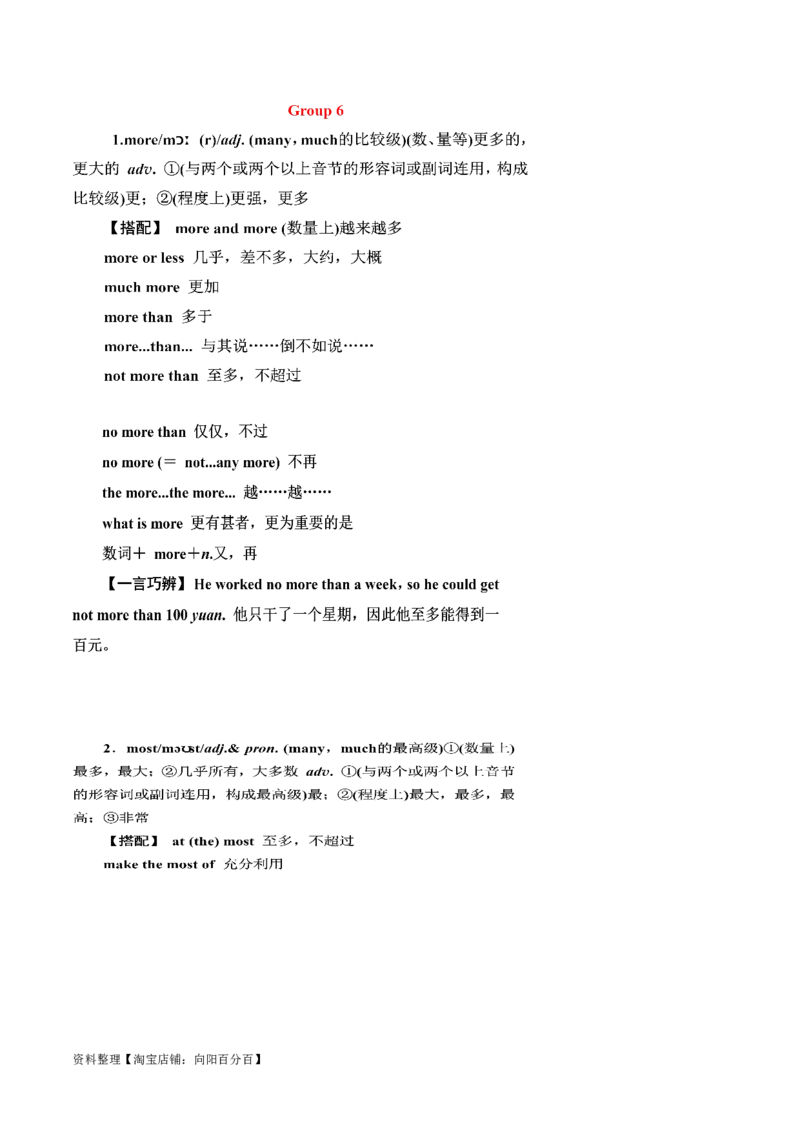 Group 6
1.more/mɔː (r)/adj. (many,much的比较级)(数、量等)更多的，
更大的 adv. ①(与两个或两个以上音节的形容词或副词连用，构成
比较级)更；②(程度上)更强，更多
【搭配】 more and more (数量上)越来越多
more or less 几乎，差不多，大约，大概
much more 更加
more than 多于
more...than... 与其说……倒不如说……
not more than 至多，不超过
no more than 仅仅，不过
no more (＝ not...any more) 不再
the more...the more... 越……越……
what is more 更有甚者，更为重要的是
数词＋ more＋n.又，再
【一言巧辨】He worked no more than a week，so he could get
not more than 100 yuan. 他只干了一个星期，因此他至多能得到一
百元。
2．most/məʊst/adj.& pron. (many，much的最高级)①(数量上)
最多，最大；②几乎所有，大多数 adv. ①(与两个或两个以上音节
的形容词或副词连用，构成最高级)最；②(程度上)最大，最多，最
高；③非常
【搭配】 at (the) most 至多，不超过
make the most of 充分利用
资料整理【淘宝店铺：向阳百分百】